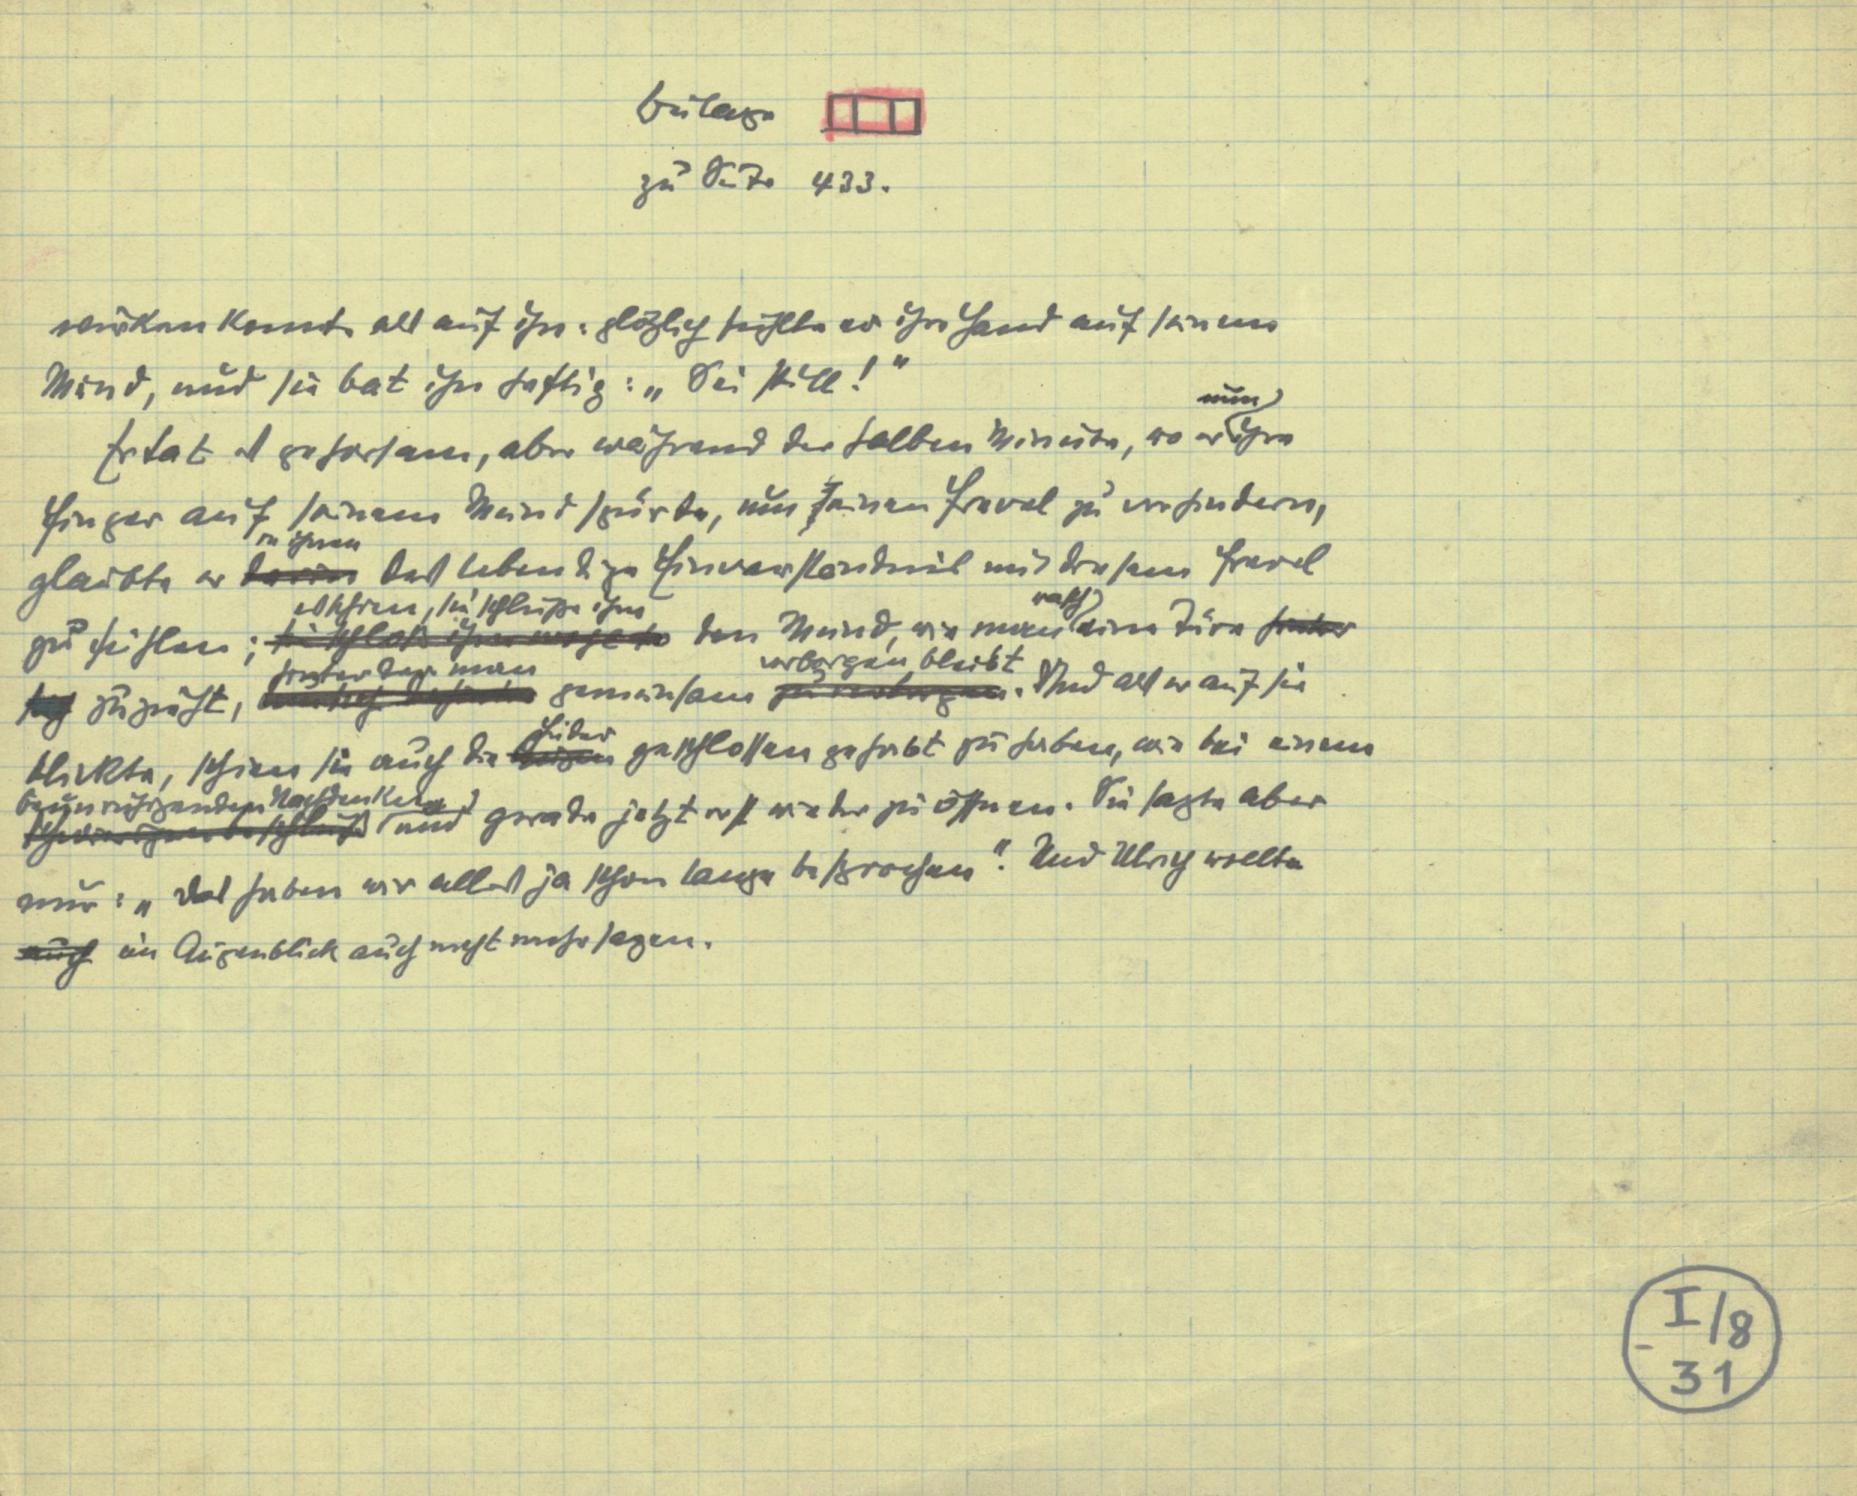 Beilage
zu Seite 433.
wirken konnte als auf ihn: plötzlich fühlte er ihre Hand auf seinem
Mund, und sie bat ihn heftig: „Sei still!“
nun
Er tat es gehorsam, aber während der selben Minute, wo er ihre
Finger auf seinem Mund spürte, um seinen Frevel zu verhindern,
in ihnen
glaubte er darin das lebendige Einverständnis mit diesem Frevel
sie schließe ihm rasch
zu fühlen; sie schloß ihm den Mund, wie man eine Türe hinter
hinter der man verborgen bleibt
sich zuzieht, gemeinsam zu verbergen. Und als er auf sie
Lider
blickte, schien sie auch die Augen geschlossen gehabt zu haben, wie bei einem
beunruhigenden Nachdenken
und gerade jetzt erst wieder zu öffnen. Sie sagte aber
nur: „Das haben wir alles ja schon lange besprochen“. Und Ulrich wollte
auch im Augenblick auch nicht mehr sagen.
I/8
31